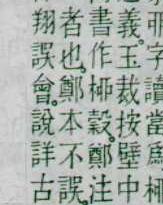 刑字讀當爲柙
義玉裁按壁中
書作柙穀鄭注
者也鄭本不誤
翔誤會說詳古